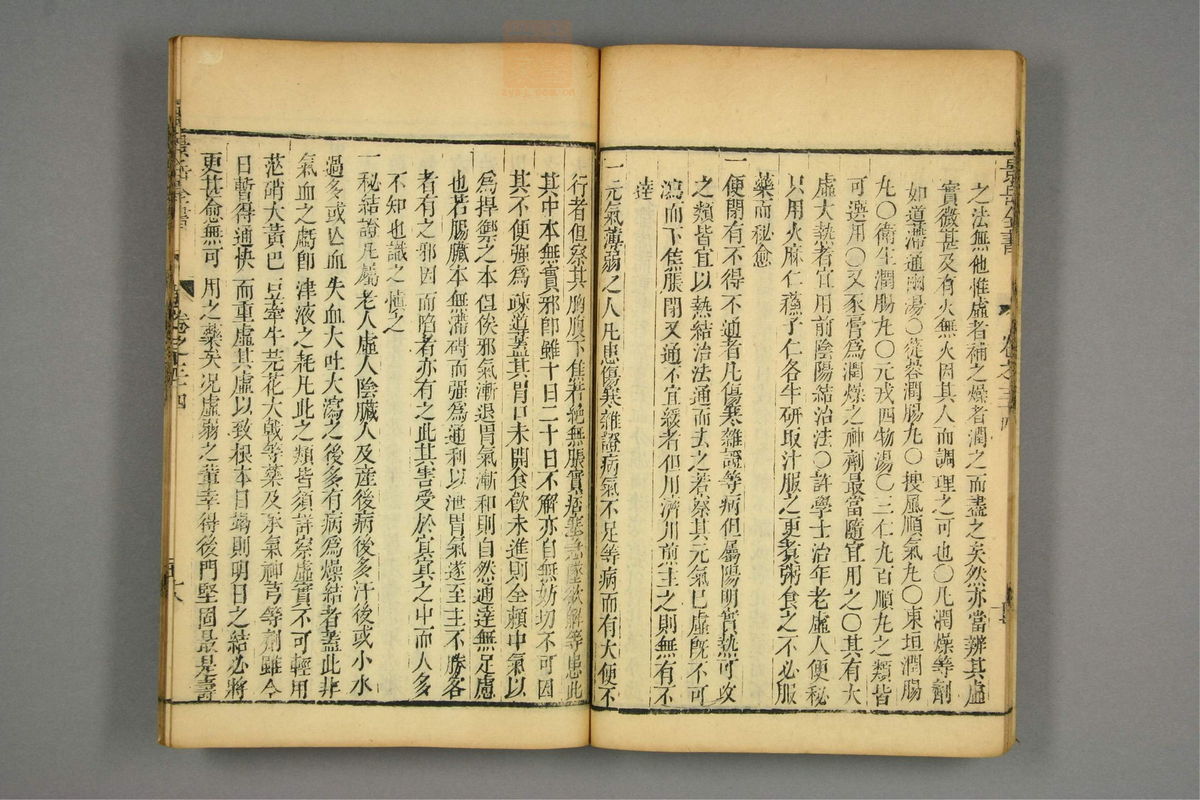 景岳全書
卷之三十四
之法無他惟虛者補之燥者潤之而盡之矣然亦當辨其虛
實微甚及有火無火因其人而調理之可也○凡潤燥等劑
如導滯通幽湯○蓯蓉潤腸丸○搜風順氣丸○東垣潤腸
丸○衛生潤腸丸○元戎四物湯○三仁丸百順丸之類皆
可選用○又豕膏爲潤燥之神劑最當隨宜用之○其有大
虛大熱者宜用前陰陽結治法○許學士治年老虛人便秘
只用火麻仁蘓子仁各半研取汁服之更煮粥食之不必服
藥而秘愈
一便閉有不得不通者凡傷寒雜證等病但屬陽明實熱可攻
之類皆宜以熱結治法通而去之若察其元氣已虛既不可
瀉而下焦脹閉又通不宜緩者但用濟川煎主之則無有不
達
一元氣薄弱之人凡患傷寒雜證病氣不足等病而有大便不
行者但察其胸腹下焦若絕無脹實痞塞急墜欲解等患此
其中本無實邪卽雖十日二十日不解亦自無妨切不可因
其不便强爲疎導蓋其胃口未開食飲未進則全賴中氣以
爲捍禦之本但俟邪氣漸退胃氣漸和則自然通達無足慮
也若腸臟本無滯碍而强爲通利以泄胃氣遂至主不勝客
者有之邪因而陷者亦有之此其害受於冥冥之中而人多
不知也識之愼之
一秘結證凡屬老人虛人陰臟人及產後病後多汗後或小水
過多或亡血失血大吐大瀉之後多有病爲燥結者蓋此非
氣血之虧卽津液之耗凡此之類皆須詳察虛實不可輕用
芒硝大黃巴豆牽牛芫花大戟等藥及承氣神芎等劑雖今
日暫得通快而重虛其虛以致根本日竭則明日之結必將
更甚愈無可用之藥矣況虛弱之輩幸得後門堅固最是壽
景岳全書
卷之三十四